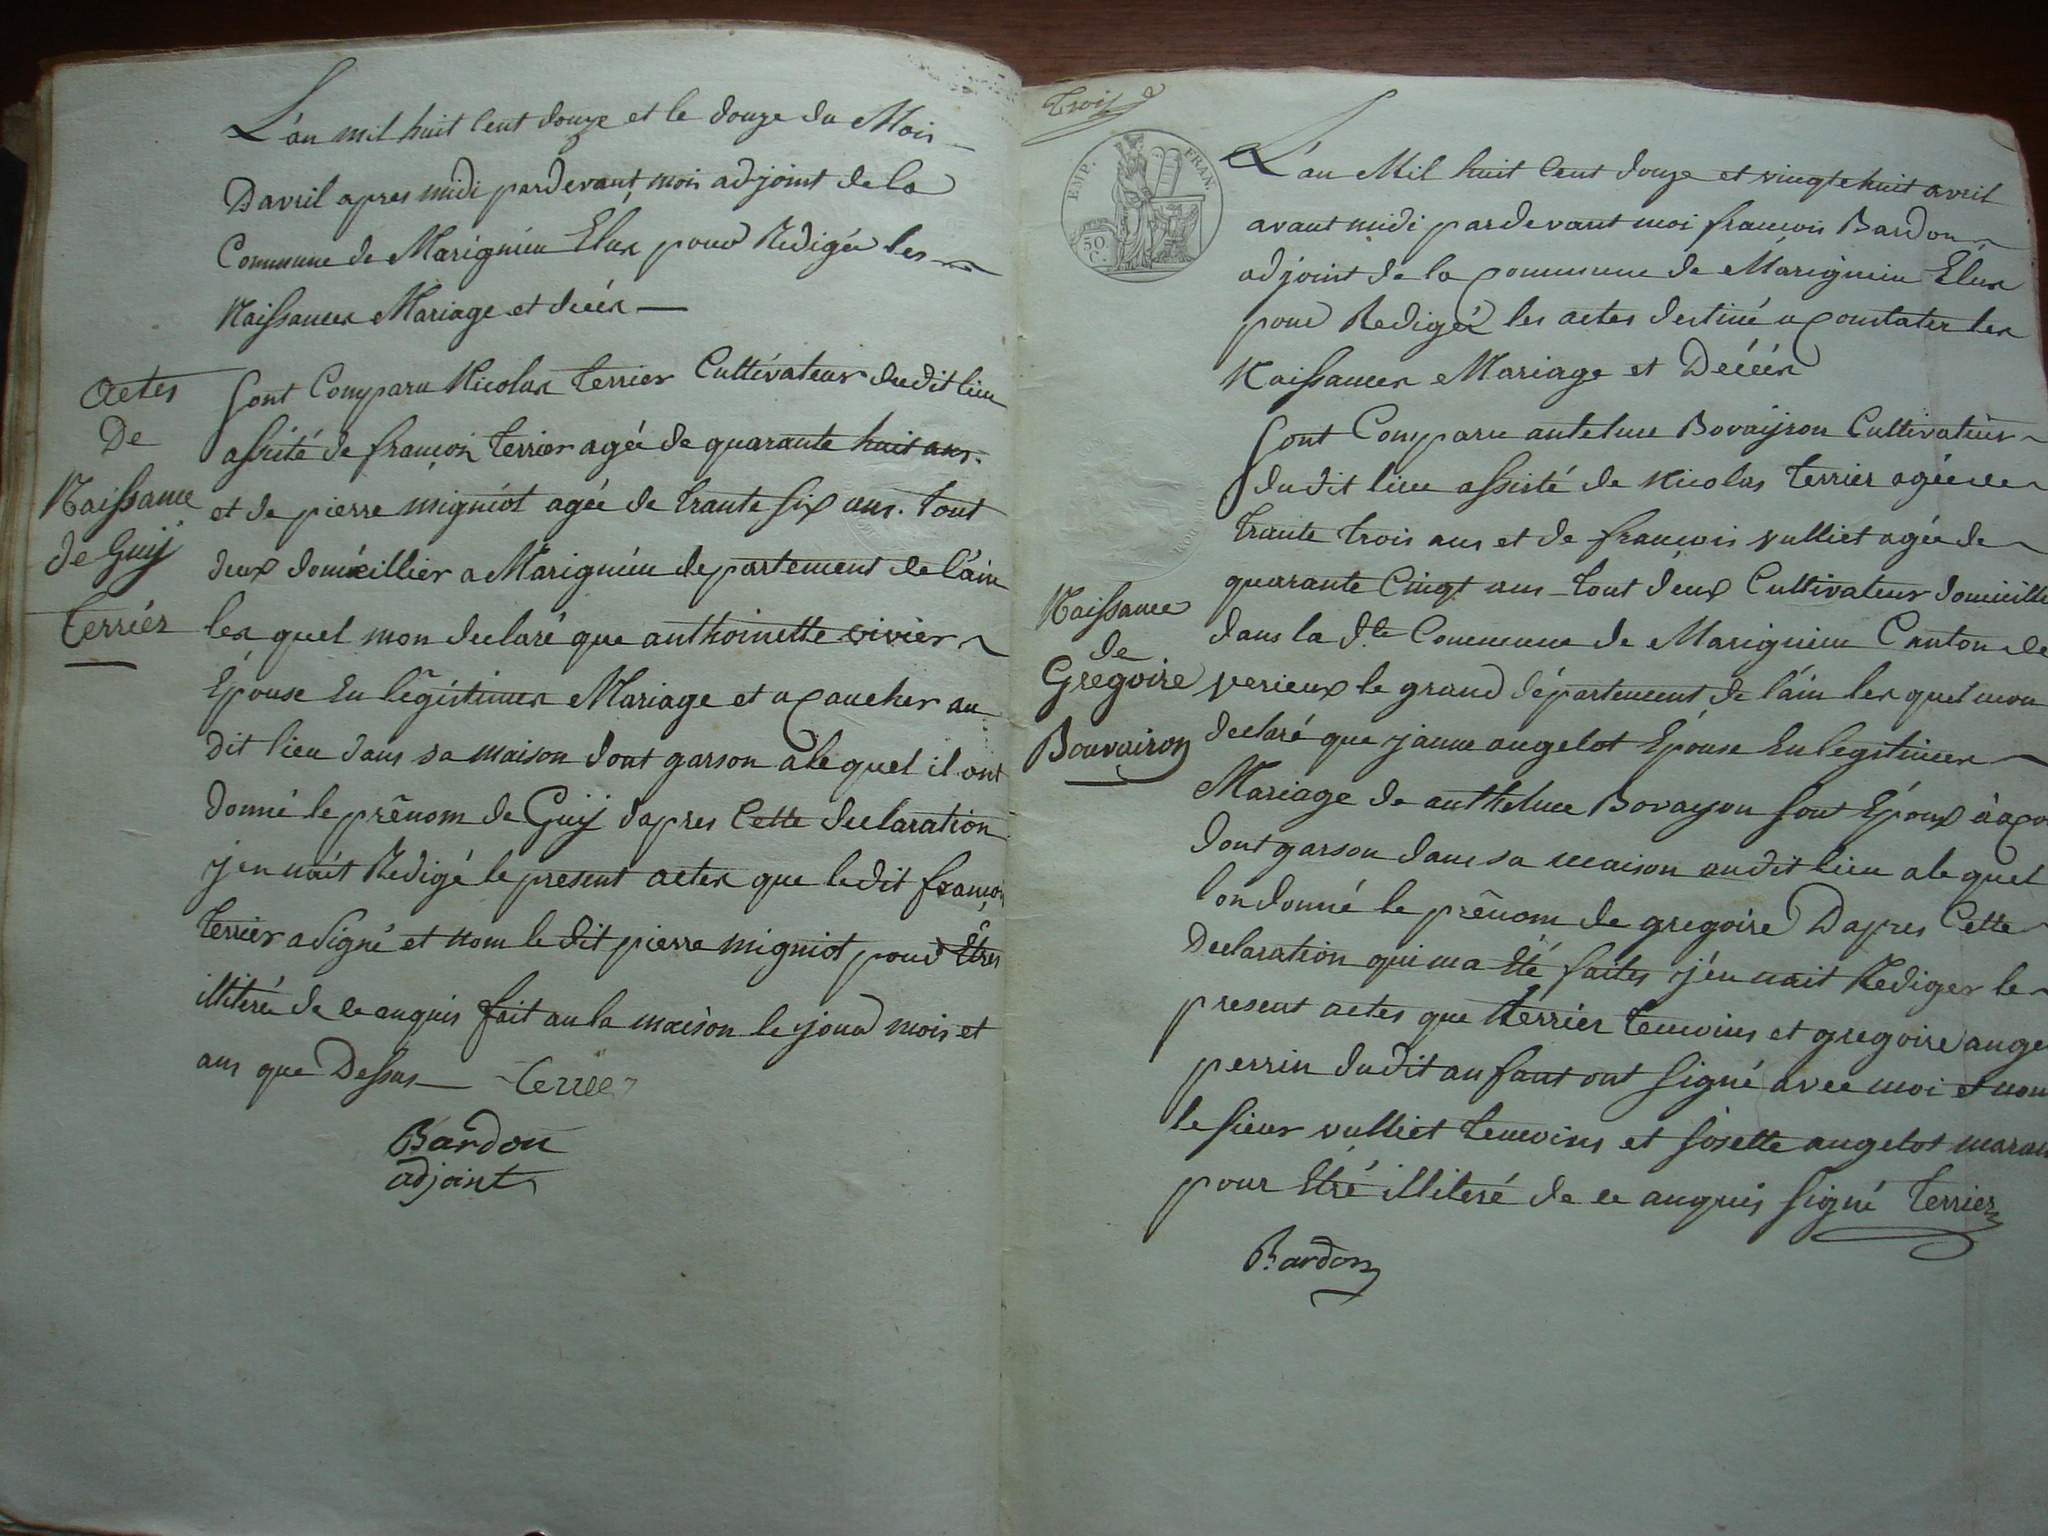 L'an mil huit Cent douze et le douze du Mois
Davril apres midi pardevant mois adjoint de la
Commune de Marignieu Elus pour Redigée les
Naissances Mariage et décés
Actes
De
Naissance
de Guÿ
Terriér
Sont Comparu Nicolas Terrier Cultivateur dudit lieu
assisté de françois Terrier agée de quarante huit ans
et de pierre migniot agée de trante six ans. tout
deux domicillier a Marignieu departement de l'ain
les quel mon declaré que anthoinette vivier
Epouse En légistimes Mariage et a caucher au
dit lieu dans sa maison dont garson a le quel il ont
donné le prénom de Guÿ dapres Cette declaration
j'en nait Redigé le present actes que ledit françois
Terrier a Signé et nom le dit pierre migniot pour Etres
illiteré de ce anquis fait au la maison le jour mois et
ans que Dessus Terrier
Bardon
adjoint
Trois
EMP. FRAN.
50 C.
L'an Mil huit Cent douze et vingt huit avril
avant midi pardevant moi françois Bardon
adjoint de la commune de Marignieu Elus
pour Redigée les actes destiné a constater les
Naissances Mariage et Décés
Naissance
de
Gregoire
Bouvairon
Sont Comparu antelme Bovaÿron Cultivateur
dudit lieu assisté de Nicolas Terrier agée
trante trois ans et de francois vulliet agée de
quarante Cinqt ans tout deux Cultivateur domicille
dans la dte Commune de Marignieu Canton de
verieux le grand département de l'ain les quel mon
declaré que janne angelot Epouse En legitimes
Mariage de anthelme Bovayon Sont Epoux a aco
dont garson dans sa maison audit lieu a le quel
l'on donné le prénom de gregoire Dapres Cette
Declaration qui ma Eté faites j'en nait Rediger le
present actes que Terriér temoins et gregoire ange
perrin dudit anfant ont Signé avec moi et non
le Sieur vulliet temoins et Josette angelot marau
pour Etré illiteré de ce anquis Signé Terrier
Bardon